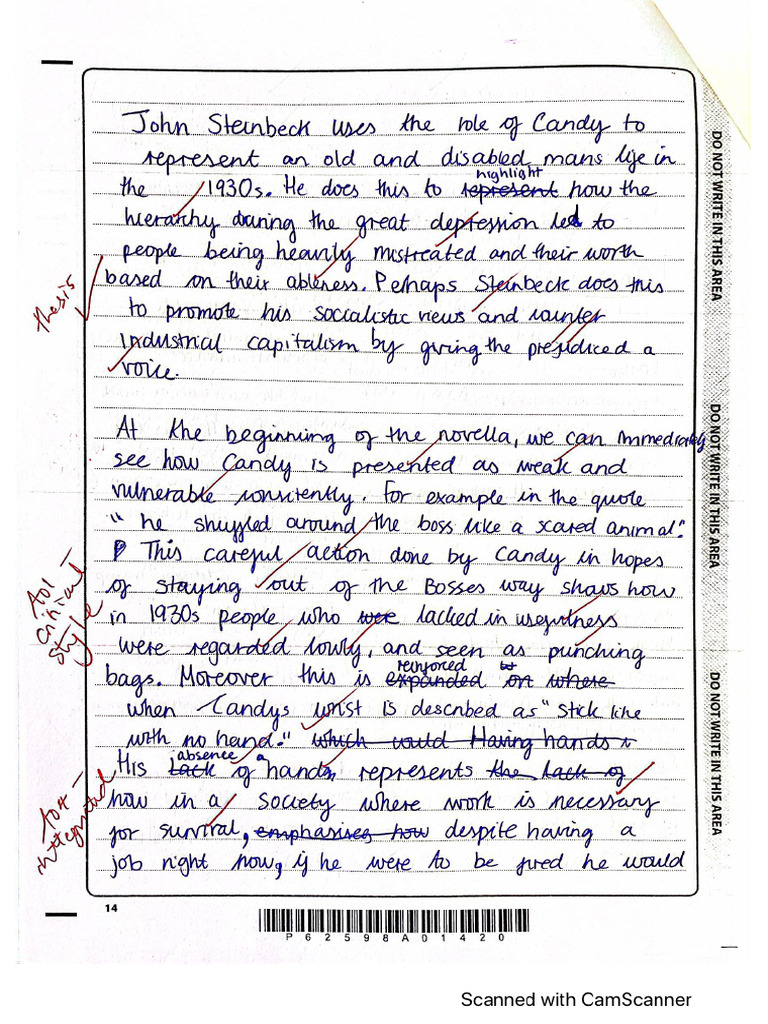 John Steinbeck uses the role of Candy to
represent an old and disabled mans life in
the 1930s. He does this to represent highlight how the
hierarchy during the great depression led to
people being heavily mistreated and their worth
based on their ableness. Perhaps Steinbeck does this
to promote his socialistic views and counter
industrial capitalism by giving the prejudiced a
voice.
thesis
At the beginning of the novella, we can immediately
see how Candy is presented as weak and
vulnerable consitently. For example in the quote
" he shuffled around the boss like a scared animal".
This careful action done by Candy in hopes
of staying out of the Bosses way shows how
in 1930s people who were lacked in usefulness
were regarded lowly, and seen as punching
bags. Moreover this is expanded reinforced on where
when Candys wrist is described as "stick like
with no hand." which would Having hands
His lack absence of a hand represents the lack of
how in a society where work is necessary
for survival, emphasises how despite having a
job right now, if he were to be fired he would
AO1 critical style
AO4 integrated
DO NOT WRITE IN THIS AREA
DO NOT WRITE IN THIS AREA
DO NOT WRITE IN THIS AREA
14
P62598A01420
Scanned with CamScanner